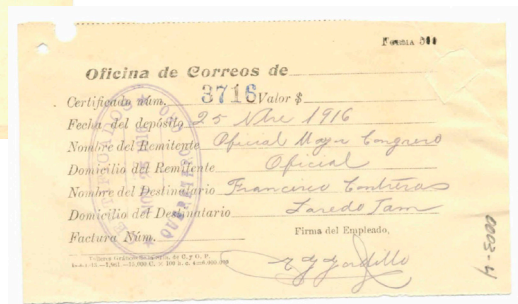 Forma 500
Oficina de Correos de
Certificado núm. 3716 Valor $
Fecha del depósito 25 Nbre 1916
Nombre del Remitente Oficial Mayor Congreso
Domicilio del Remitente Oficial
Nombre del Destinatario Francisco Contreras
Domicilio del Destinatario Laredo Tam
Factura Núm.
Firma del Empleado,
0003-4
QUERETARO